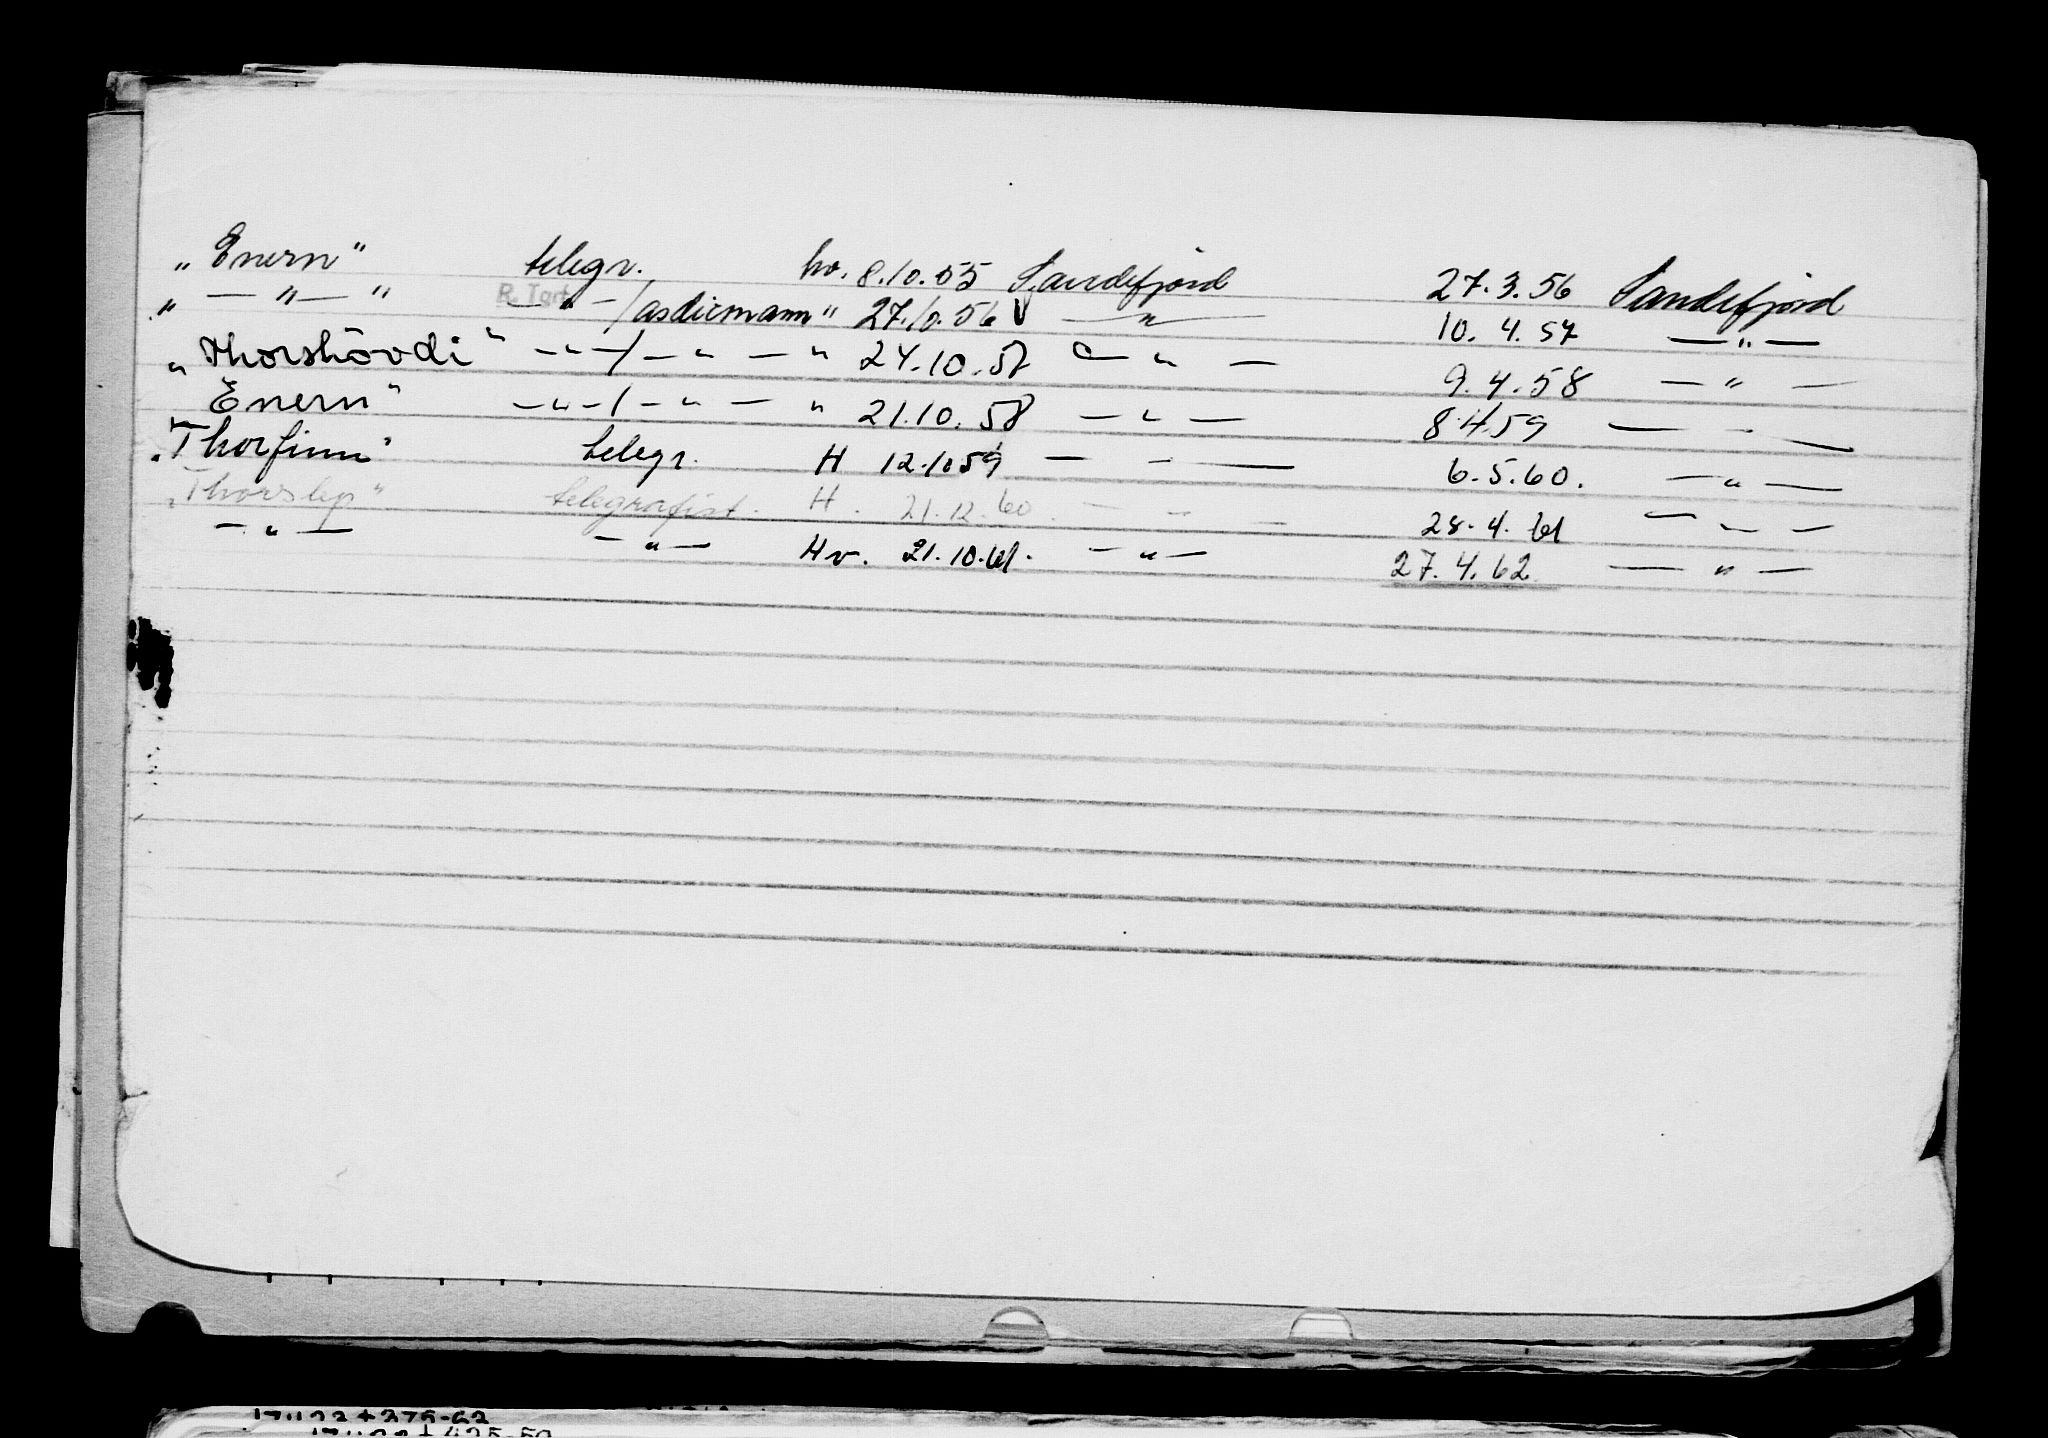 „Enern" telegr. hv. 8.10.55 Sandefjord 27.3.56 Sandefjord
„ — " — " — " — / asdicmann " 27.10.56 — " — 10.4.57 — " —
„Thorshövdi" — " — / — " — " 24.10.57 — " — 9.4.58 — " —
Enern" — " — / — " — " 21.10.58 — " — 8.4.59 — " —
„Thorfinn" telegr. H 12.10.59 — " — 6.5.60. — " —
„Thorslep" telegrafist. H. 21.12.60. — " — 28.4.61 — " —
— " — — " — Hv. 21.10.61. — " — 27.4.62 — " —